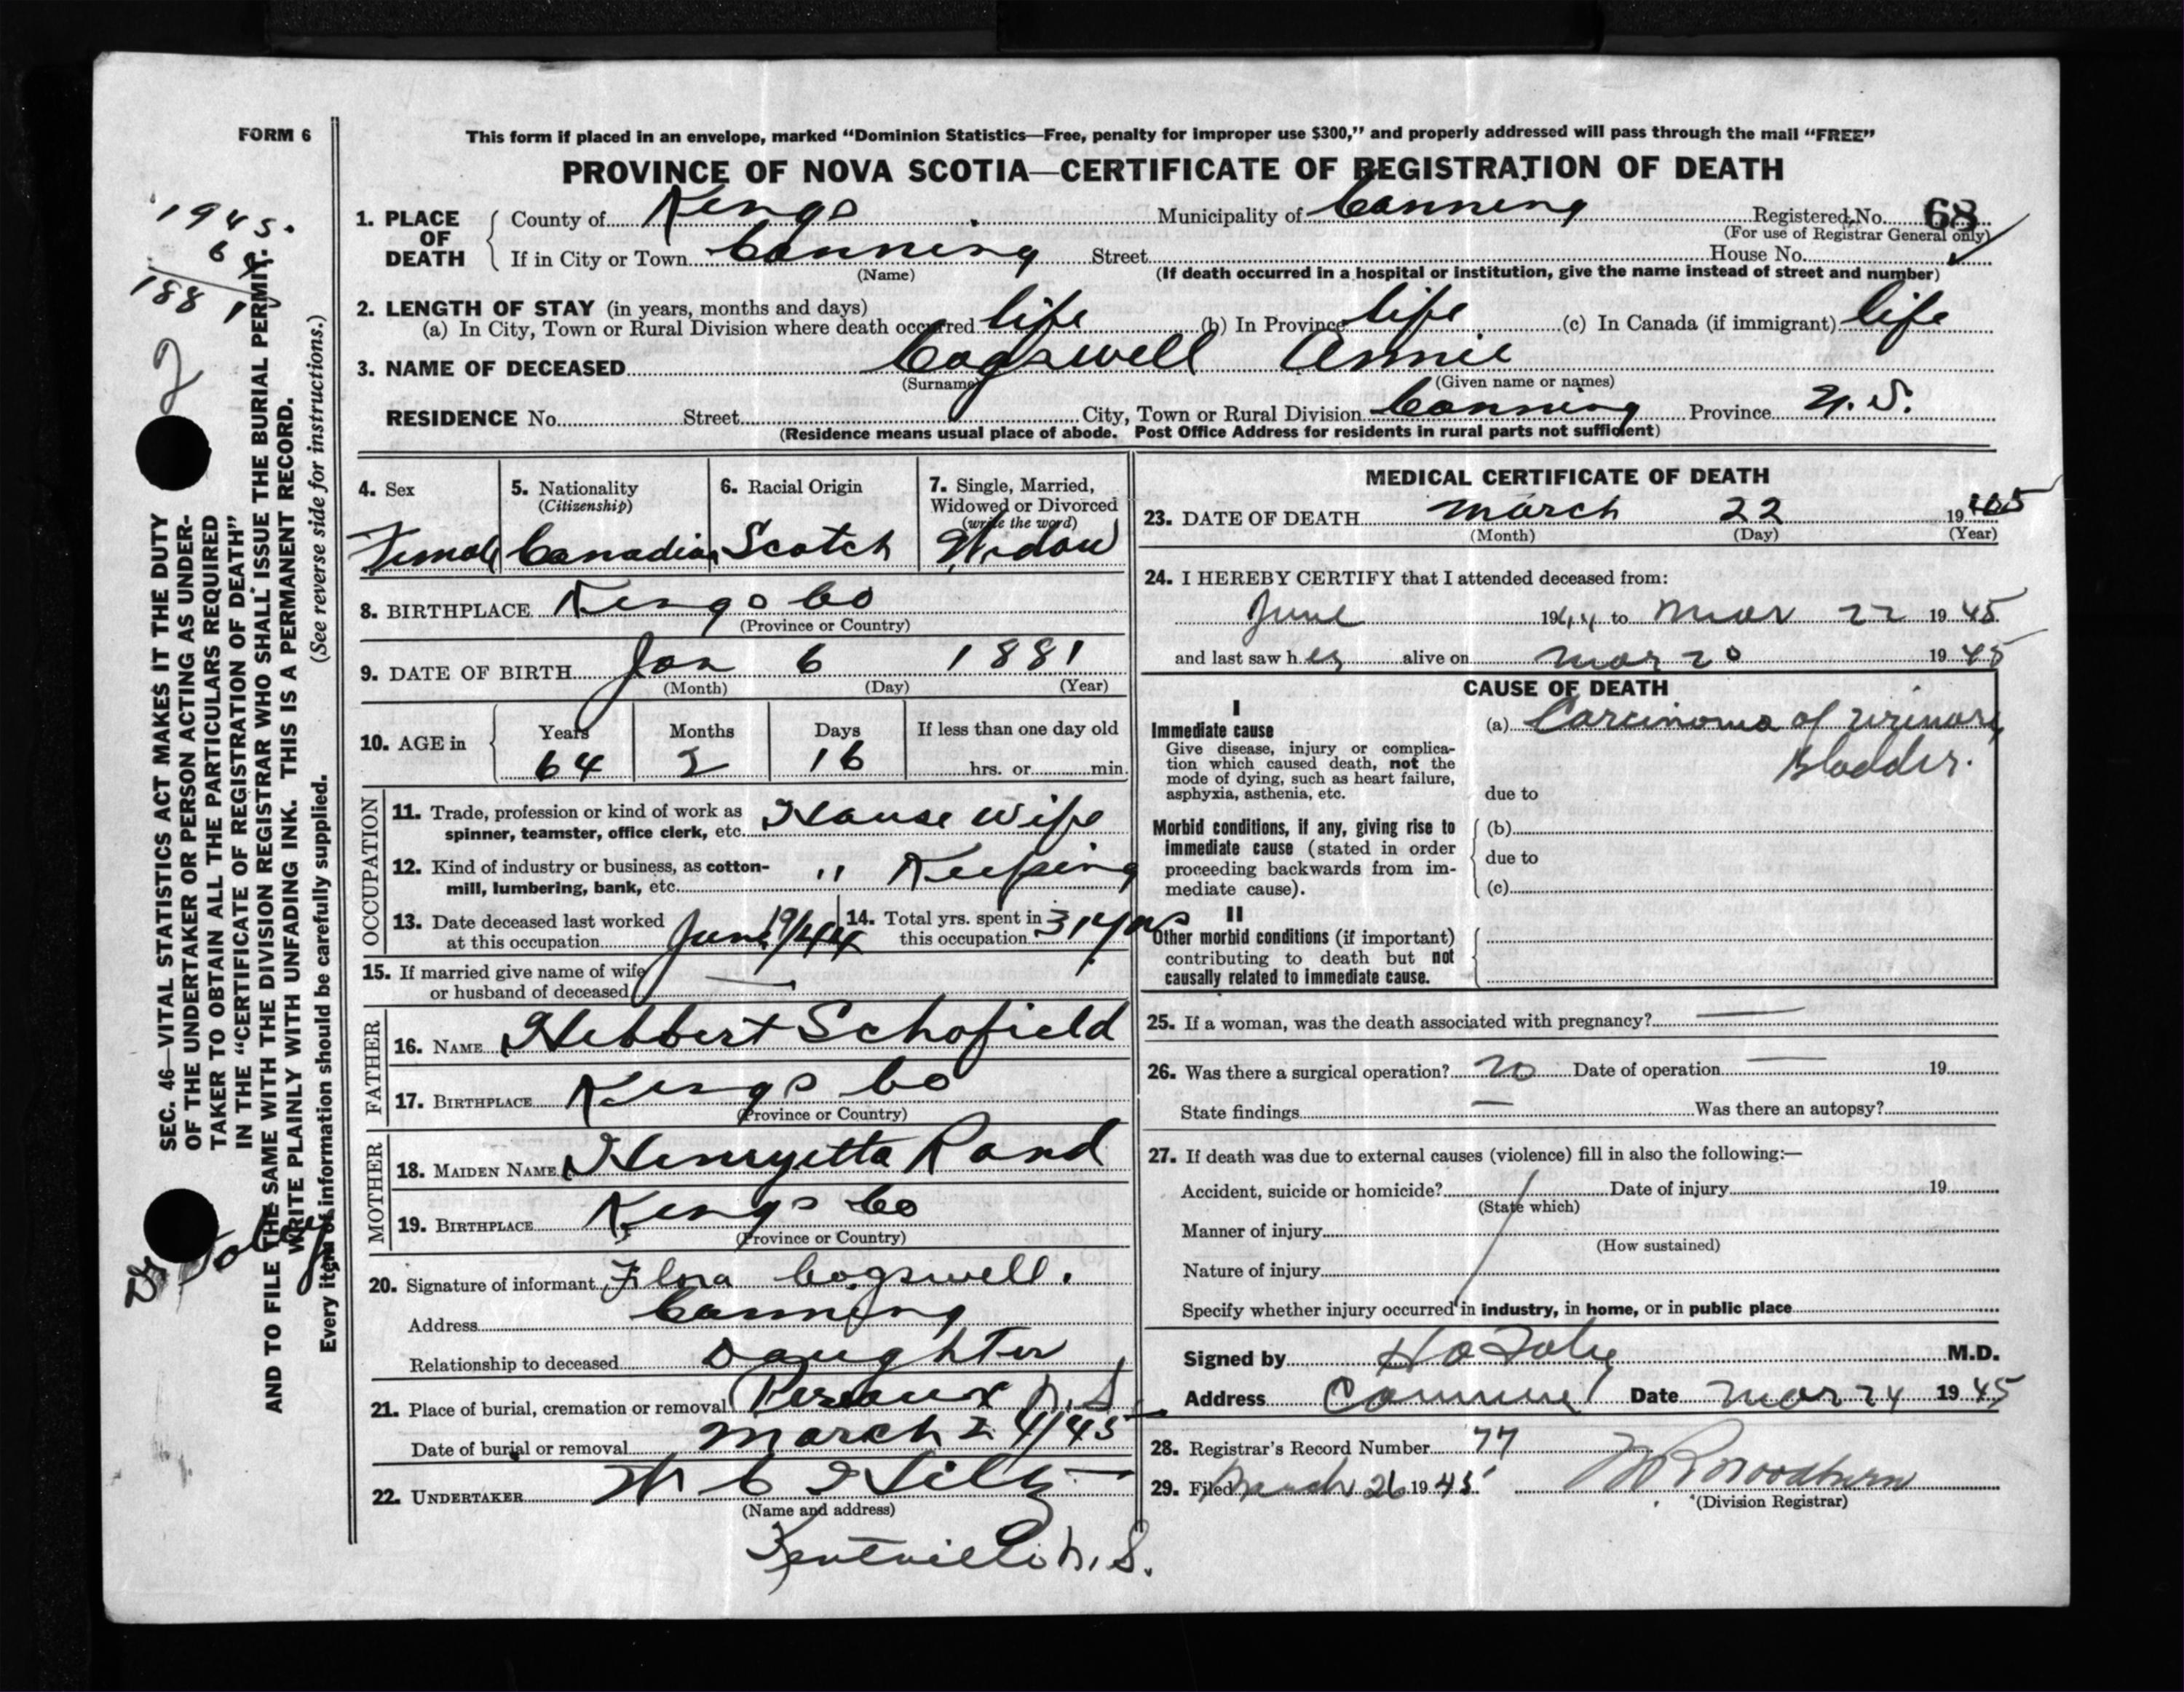 FORM 6
This form if placed in an envelope, marked “Dominion Statistics—Free, penalty for improper use $300,” and properly addressed will pass through the mail “FREE”
PROVINCE OF NOVA SCOTIA—CERTIFICATE OF REGISTRATION OF DEATH
1. PLACE OF DEATH
County of Kings Municipality of Canning Registered No. 68
(For use of Registrar General only)
If in City or Town Canning Street House No.
(Name) (If death occurred in a hospital or institution, give the name instead of street and number)
2. LENGTH OF STAY (in years, months and days)
(a) In City, Town or Rural Division where death occurred life (b) In Province life (c) In Canada (if immigrant) life
3. NAME OF DECEASED Cogswell Annie
(Surname) (Given name or names)
RESIDENCE No. Street City, Town or Rural Division Canning Province N.S.
(Residence means usual place of abode. Post Office Address for residents in rural parts not sufficient)
4. Sex
Female
5. Nationality
(Citizenship)
Canadian
6. Racial Origin
Scotch
7. Single, Married,
Widowed or Divorced
(write the word)
Widow
8. BIRTHPLACE Kings Co
(Province or Country)
9. DATE OF BIRTH Jan 6 1881
(Month) (Day) (Year)
10. AGE in
Years Months Days If less than one day old
64 2 16 hrs. or min.
OCCUPATION
11. Trade, profession or kind of work as
spinner, teamster, office clerk, etc. House Wife
12. Kind of industry or business, as cotton-
mill, lumbering, bank, etc. " Keeping
13. Date deceased last worked
at this occupation June 19/44
14. Total yrs. spent in
this occupation 31 yrs
15. If married give name of wife
or husband of deceased —
FATHER
16. NAME Hebbert Schofield
17. BIRTHPLACE Kings Co
(Province or Country)
MOTHER
18. MAIDEN NAME Henryetta Rand
19. BIRTHPLACE Kings Co
(Province or Country)
20. Signature of informant Flora Cogswell.
Address Canning
Relationship to deceased Daughter
21. Place of burial, cremation or removal Pereaux N.S.
Date of burial or removal March 24/45
22. UNDERTAKER W C Hiltz
(Name and address)
Kentville N.S.
MEDICAL CERTIFICATE OF DEATH
23. DATE OF DEATH March 22 1945
(Month) (Day) (Year)
24. I HEREBY CERTIFY that I attended deceased from:
June 1944 to Mar 22 1945
and last saw her alive on Mar 20 1945
CAUSE OF DEATH
I
Immediate cause
Give disease, injury or complica-
tion which caused death, not the
mode of dying, such as heart failure,
asphyxia, asthenia, etc.
(a) Carcinoma of urinary
Bladder.
due to
Morbid conditions, if any, giving rise to
immediate cause (stated in order
proceeding backwards from im-
mediate cause).
(b)
due to
(c)
II
Other morbid conditions (if important)
contributing to death but not
causally related to immediate cause.
25. If a woman, was the death associated with pregnancy? —
26. Was there a surgical operation? no Date of operation — 19
State findings — Was there an autopsy?
27. If death was due to external causes (violence) fill in also the following:—
Accident, suicide or homicide? Date of injury 19
(State which)
Manner of injury
(How sustained)
Nature of injury
Specify whether injury occurred in industry, in home, or in public place
Signed by M.D.
Address Canning Date Mar 24 1945
28. Registrar's Record Number 77
29. Filed March 26 1945
(Division Registrar)
SEC. 46—VITAL STATISTICS ACT MAKES IT THE DUTY
OF THE UNDERTAKER OR PERSON ACTING AS UNDER-
TAKER TO OBTAIN ALL THE PARTICULARS REQUIRED
IN THE “CERTIFICATE OF REGISTRATION OF DEATH”
AND TO FILE THE SAME WITH THE DIVISION REGISTRAR WHO SHALL ISSUE THE BURIAL PERMIT.
WRITE PLAINLY WITH UNFADING INK. THIS IS A PERMANENT RECORD.
Every item of information should be carefully supplied. (See reverse side for instructions.)
1945.
1881
2